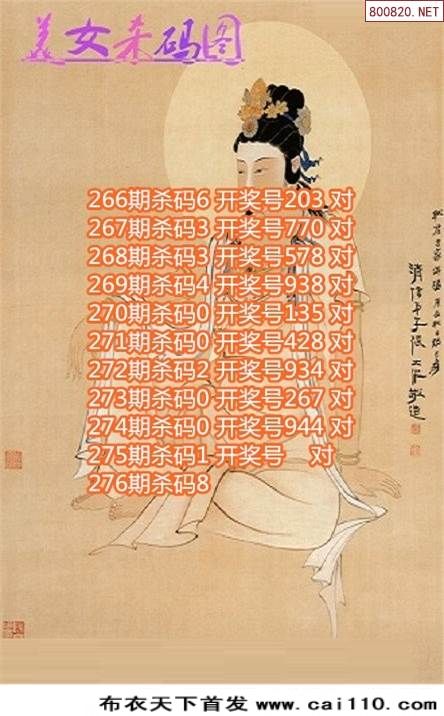 800820.NET
美女杀码图
266期杀码6 开奖号203 对
267期杀码3 开奖号770 对
268期杀码3 开奖号578 对
269期杀码4 开奖号938 对
270期杀码0 开奖号135 对
271期杀码0 开奖号428 对
272期杀码2 开奖号934 对
273期杀码0 开奖号267 对
274期杀码0 开奖号944 对
275期杀码1 开奖号 对
276期杀码8
布衣天下首发 www.cai110.com